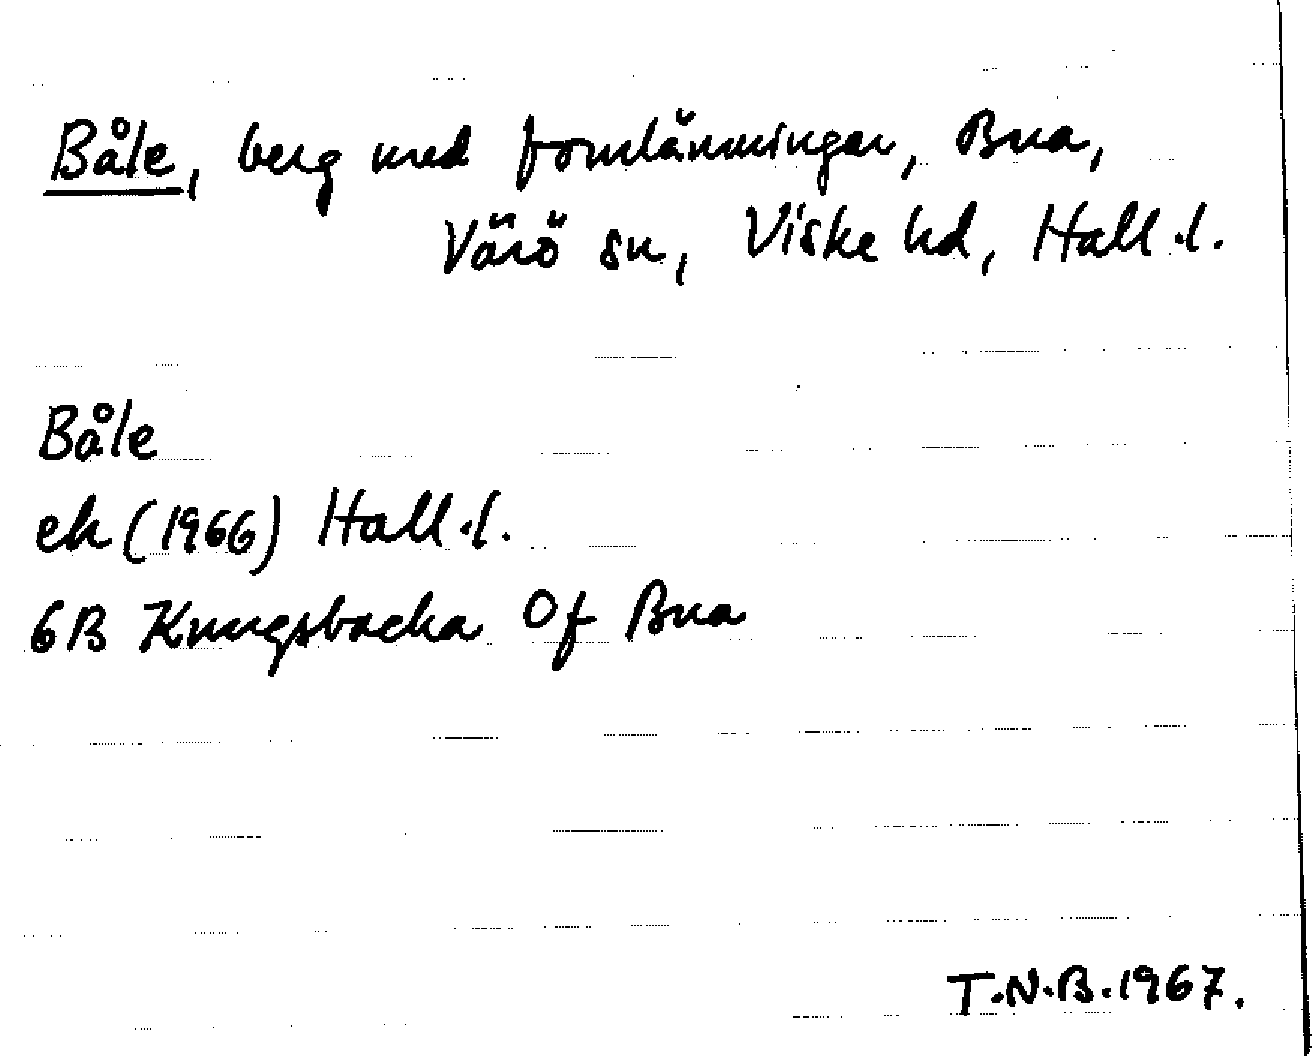 Båle, berg med fornlämningar, Bua,
Värö sn, Viske hd, Hall.l.
Båle
ek (1966) Hall.l.
6B Kungsbacka 0f Bua
T.N.B.1967.